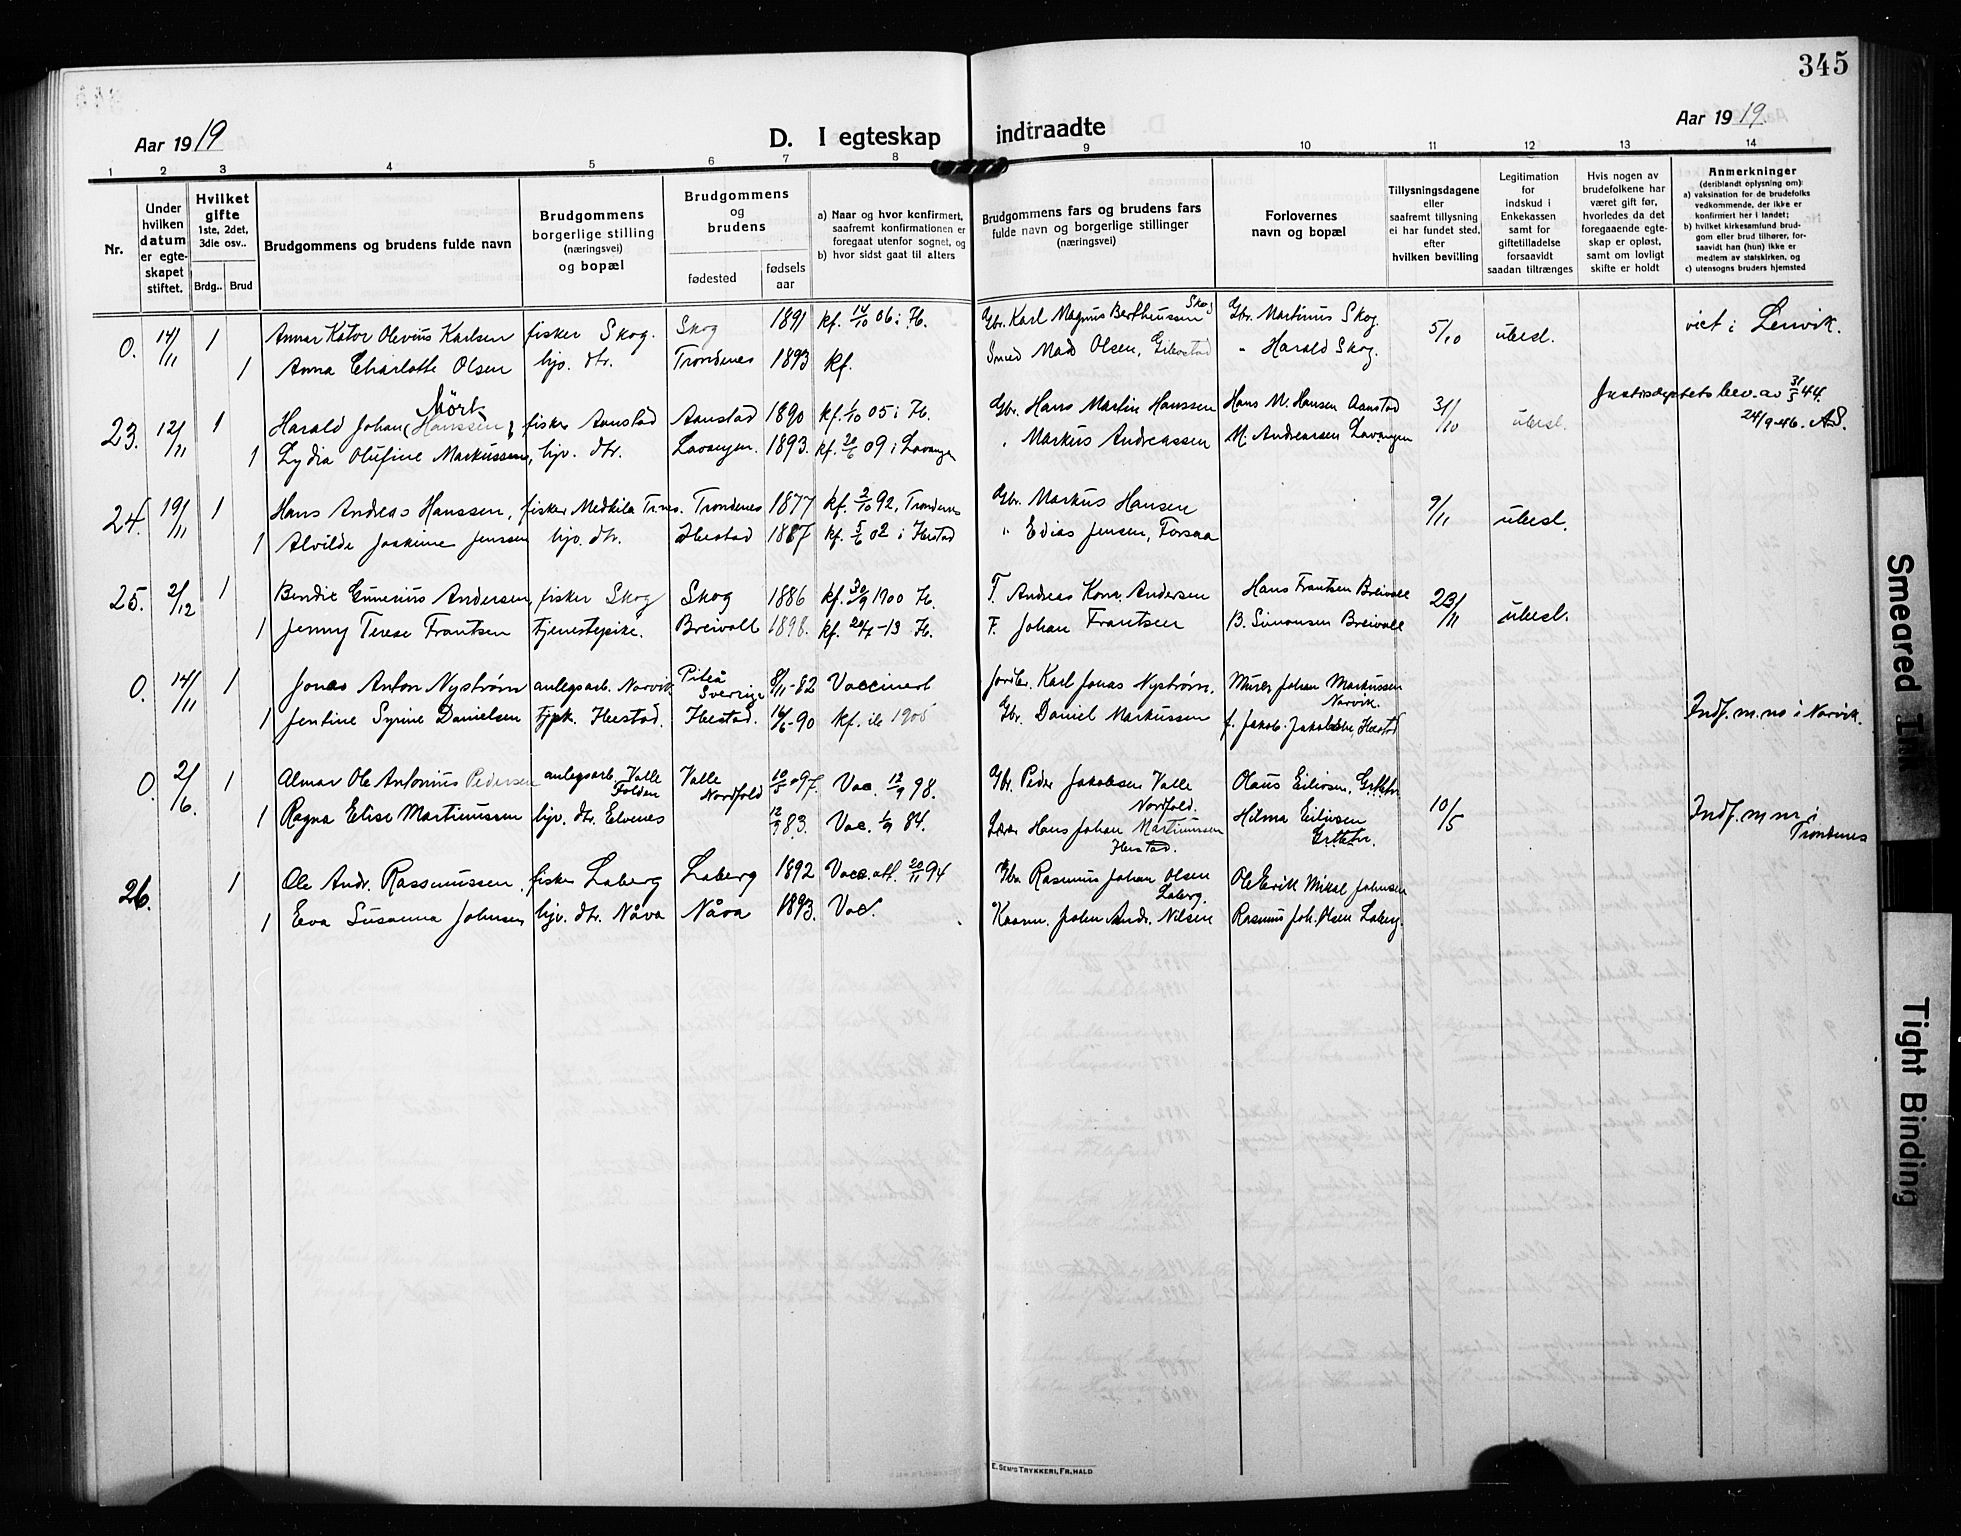 345
Aar 1919
D. I egteskap indtraadte
Aar 1919.
1 2 3 4 5 6 7 8 9 10 11 12 13 14
Nr.
Under hvilken datum er egteskapet stiftet.
Hvilket gifte 1ste, 2det, 3die osv..
Brdg.. Brud
Brudgommens og brudens fulde navn
Brudgommens borgerlige stilling (næringsvei) og bopæl
Brudgommens og brudens
fødested
fødsels aar
a) Naar og hvor kenfirmert, saafremt konfirmationen er foregaat utenfor sognet, og
b) hvor sidst gaat til alters
Brudgommens fars og brudens fars fulde navn og borgerlige stillinger (næringsvei)
Forlovernes navn og bopæl
Tillysningsdagene eller saafremt tillysning ei har fundet sted, efter hvilken bevilling
Legitimation for indskud i Enkekassen samt for giftetilladelse forsaavidt saadan tiltrænges
Hvis nogen av brudefolkene har været gift før, hvorledes da det foregaaende egteskap er opløst, samt om lovligt skifte er holdt
Anmerkninger
(deriblandt oplysning om):
a) vaksination for de brudefolks vedkommende, der ikke er konfirmert her i landet;
b) hvilket kirkesamfund brudgom eller brud tilhører, forsaavidt han (hun) ikke er medlem av statskirken, og
c) utensogns bruders hjemsted
0. 14/11 1 Olevius Karlsen fisker Skog. Skog 1891 kf. 14/10 06 i H. Gbr. Karl Magnus Bertheussen Skog Gbr. Martinus Skog. 5/10 ubesl. viet i Lenvik.
1 Anna Charlotte Olsen hjv. dtr. Trondenes 1893 kf. Smed Mad Olsen, Gibostad " Harald Skog.
23. 12/11 1 Harald Johan (Hanssen) Mörk fisker Aanstad Aanstad 1890 kf. 1/10 05 i H. Gbr. Hans Martin Hanssen Hans M. Hansen Aanstad 31/10 ubesl. Justisdeptets bev. av 31/5 44.
24/9-46. AS.
1 Lydia Olufine Markussen, hjv. dtr. Lavangen. 1893. kf. 20/6 09 i Lavangen " Markus Andreassen M. Andreassen Lavangen
24. 19/11 1 Hans Andreas Hanssen, fisker Medkila Trnes. Trondenes 1877 kf. 2/10 92, Trondenes Gbr. Markus Hansen 9/11 ubesl.
1 Alvilde Jenssen hjv. dtr. Ibestad 1887 kf. 5/6 02 i Ibestad " Edias Jensen, Forsaa
25. 2/12 1 Bendix Andersen, fisker Skog Skog 1886 kf. 30/9 1900 H. F. Andreas Andersen Hans Frantsen Breivoll 23/11 ubesl.
1 Jenny Terese Frantsen tjenestepike. Breivoll 1898. kf. -13 H. F. Johan Frantsen B. Simonsen Breivoll
0. 14/11 1 Jonas Anton Nystrøm anlegsarb. Narvik Piteå Sverrige 8/11-82 Vaccinert Jordbr. Karl Jonas Nystrøm. Murer Johan Markussen Narvik.
1 Jentine Syrine Danielsen tjpk. Ibestad. Ibestad. -90 kf. ib 1905 Gbr. Daniel Markussen f. Jakob Jakobsen, Ibestad Indf. m. no i Narvik.
0. 2/6. 1 Almar Ole Antonius Pedersen anlegsarb. Valle Folden Valle Nordfold 97. Vac. 12/9 98. Gbr. Peder Jakobsen Valle Nordfold. Olaus Eilivsen, 10/5
1 Ragna Elise Martinussen hjv. dtr. Elvenes 12/9 83. Vac. 1/9 84. Hans Johan Martinussen Ibestad. Hilma Eilivsen Indf. m nr i Trondenes
26. 1 Ole Andr. Rassmussen. fisker Laberg Laberg 1892 Vacc. att. 20/11 94 Gbr. Rasmus Johan Olsen Laberg. Ole Erik Mikal Johnsen
1 Eva Susanna Johnsen hjv. dtr. Nåva Nåva 1893. Vac. Johan Andr. Nilsen Rasmus Joh. Olsen Laberg.
E. SEM'S TRYKKERI, FR.HALD
Smeared Ink
Tight Binding